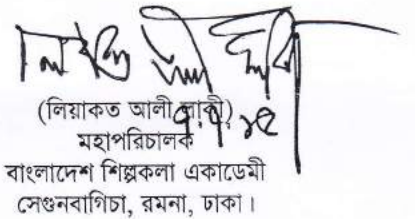 (লিয়াকত আলী লাকী)
৭.৭.১৫
মহাপরিচালক
বাংলাদেশ শিল্পকলা একাডেমী
সেগুনবাগিচা, রমনা, ঢাকা।